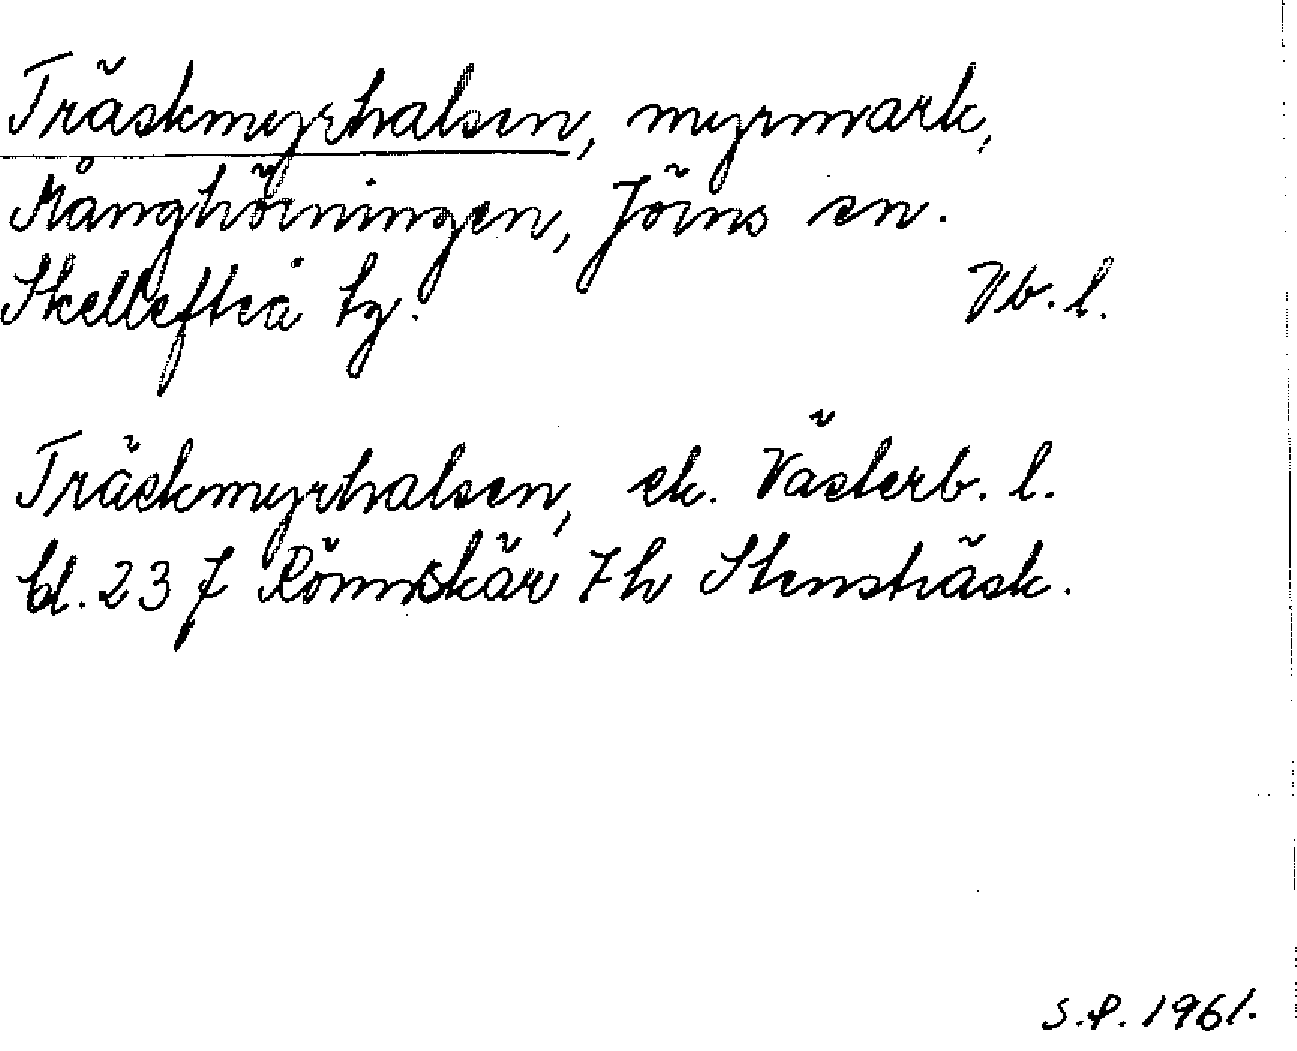 Träskmyrhalsen, myrmark,
Månghörningen, Jörns sn.
Skellefteå tg. Vb. l.
Träskmyrhalsen, ek. Västerb. l.
bl. 23 J Rönnskär 7 h Stensträsk.
S.P. 1961.